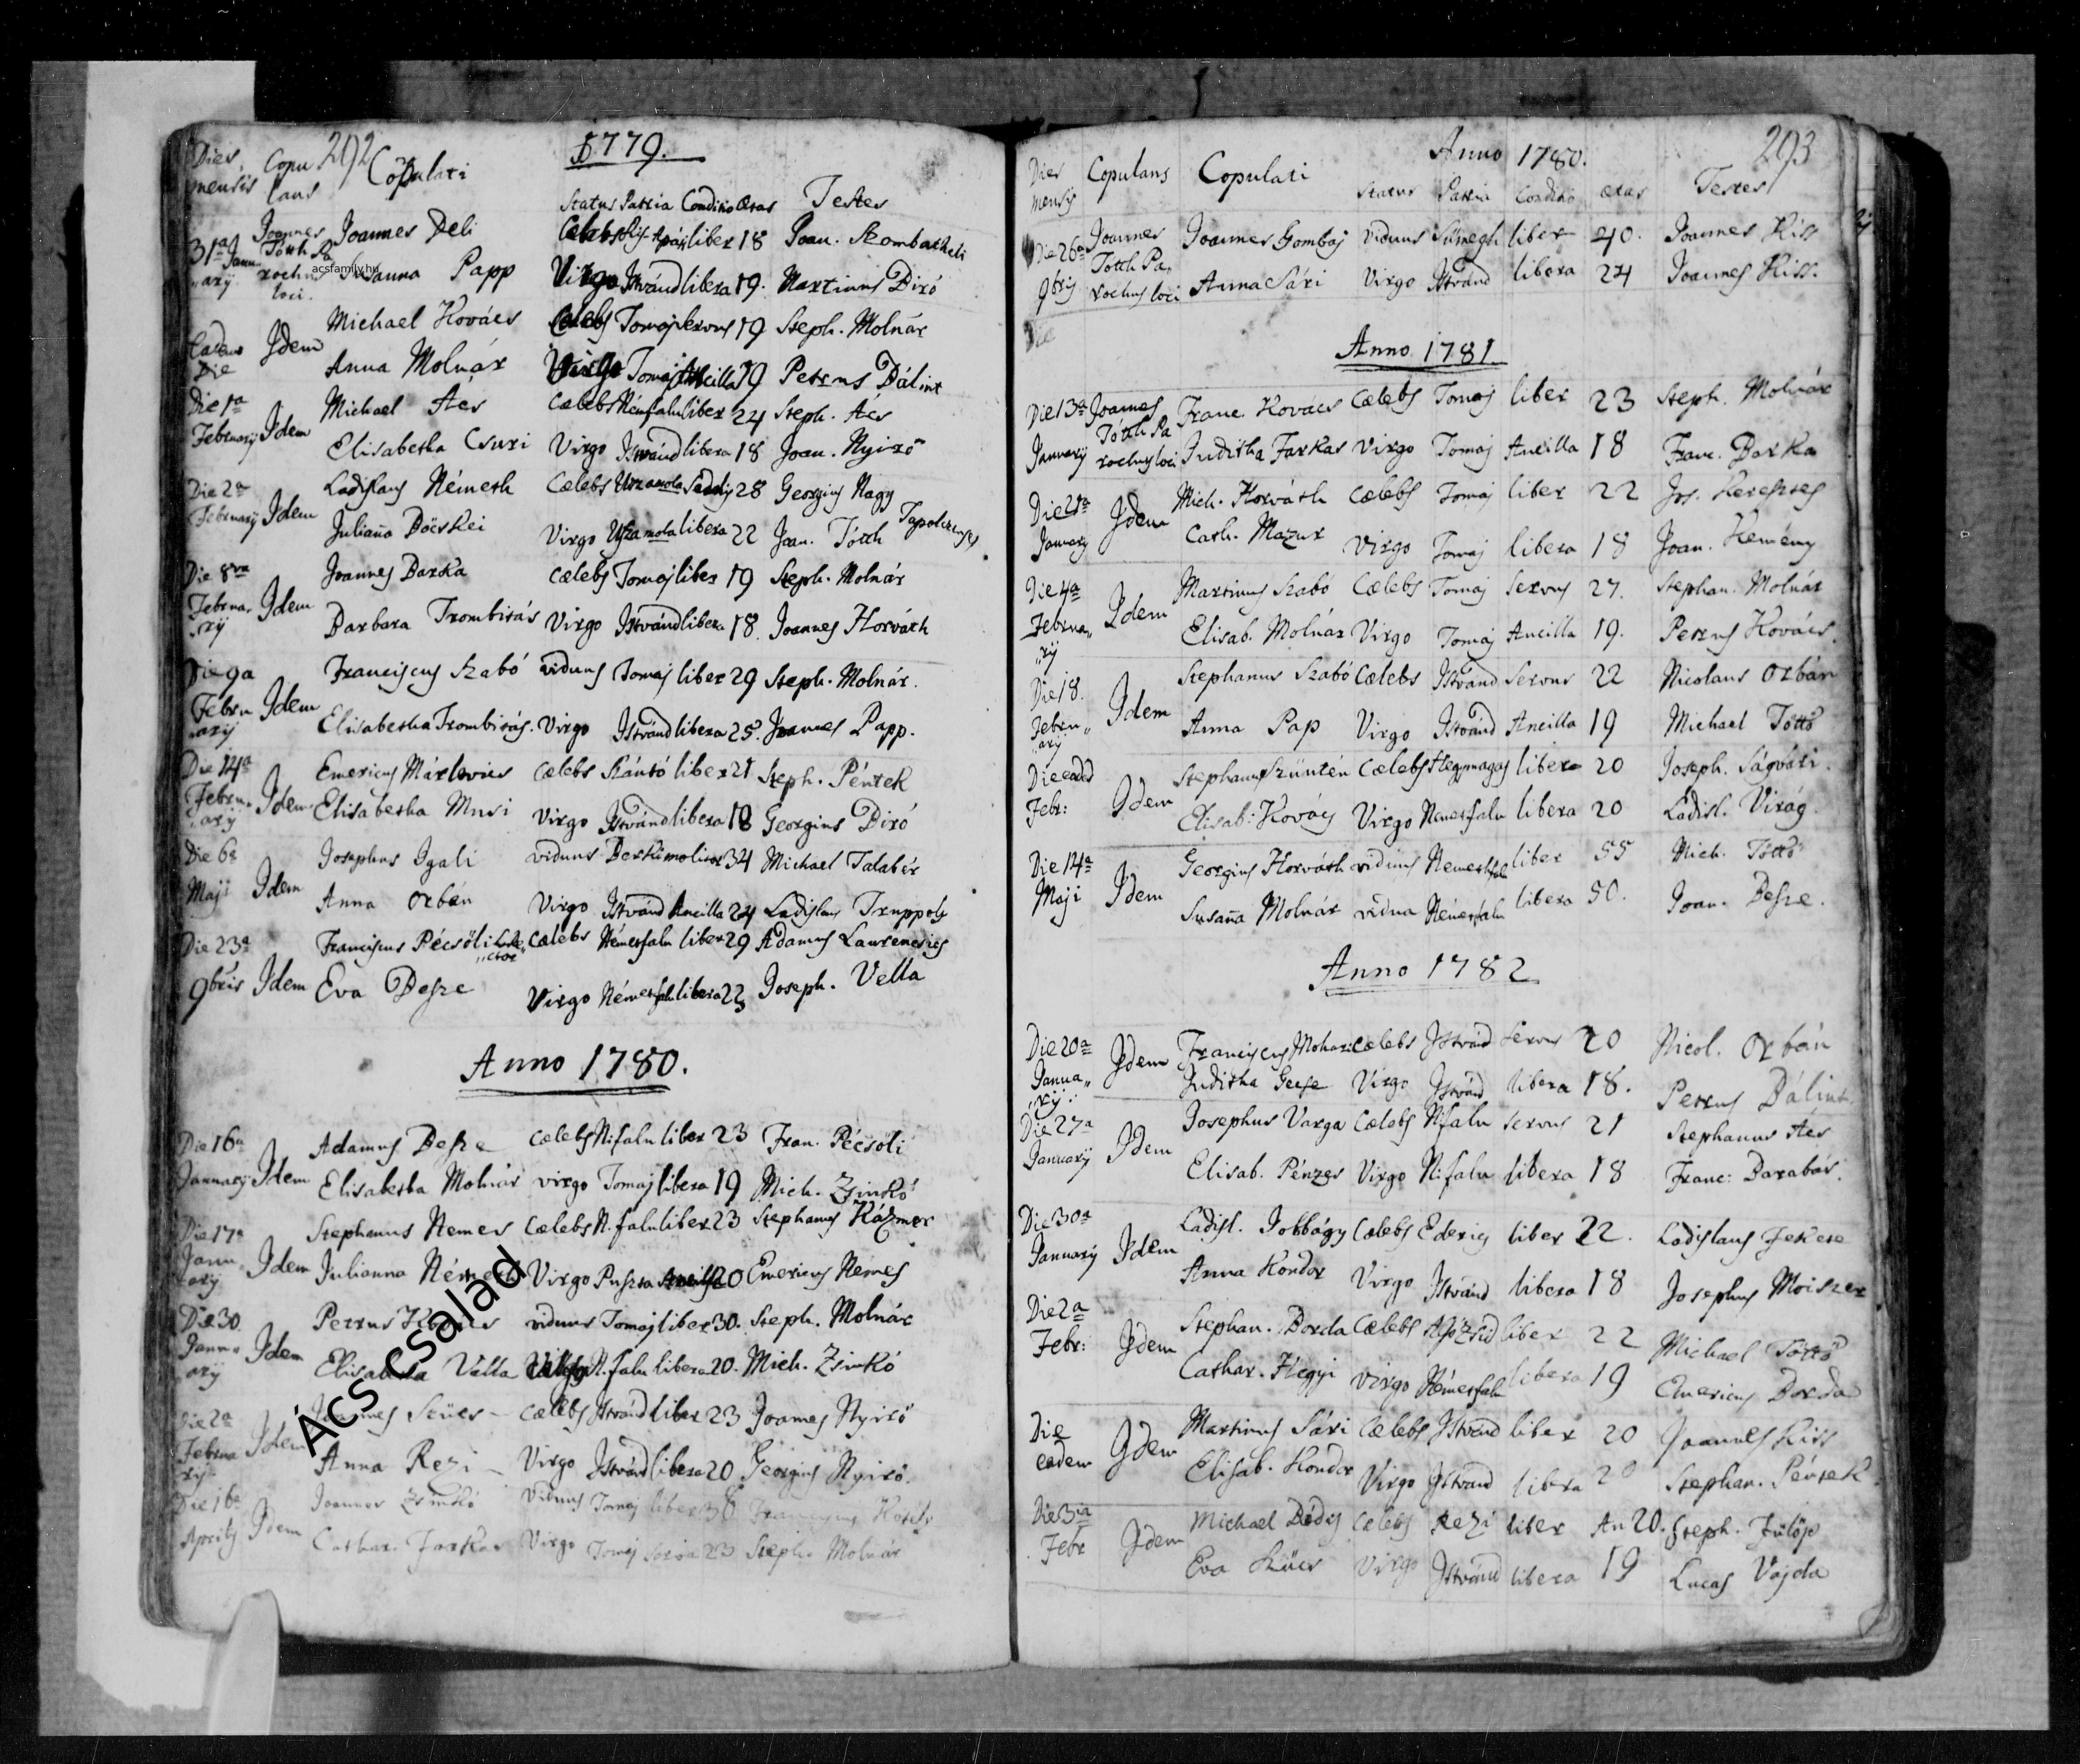 292
1779.
Dies mensis Copulans Copulati Status Patria Conditio Ætas Testes
31a Januarij Joannes Tóth Parochus loci. Joannes Deli Cælebs Kis Apáti liber 18 Joan. Szombatheli
Susanna Papp Virgo Istvánd libera 19. Martinus Biró
Eadem Die Idem Michael Kovács Cælebs Tomaj servus 19 Steph. Molnár
Anna Molnár Virgo Tomaj Ancilla 19 Petrus Bálint
Die 1a Februarij Idem Michael Ács Cælebs Némfalu liber 24 Steph. Ács
Elisabetha Csuri Virgo Istvánd libera 18 Joan. Nyirő
Die 2a Februarij Idem Ladislaus Németh Cælebs 28 Georgius Nagy
Juliana Böcskei Virgo libera 22 Joan. Tóth Tapolczenses
Die 8va Februarij Idem Joannes Barka Cælebs Tomaj liber 19 Steph. Molnár
Barbara Trombitás Virgo Istvánd libera 18. Joannes Horváth
Die 9a Februarij Idem Franciscus Szabó viduus Tomaj liber 29 Steph. Molnár.
Elisabetha Trombitás. Virgo Istvánd libera 25. Joannes Papp.
Die 14a Februarij Idem Emericus Cælebs Szántó liber 21 Steph. Péntek
Elisabetha Musi Virgo Istvánd libera 18 Georgius Biró
Die 6a Maji Idem Josephus Igali viduus molitor 34 Michael Talabér
Anna Orbán Virgo Istvánd Ancilla 24 Ladislaus
Die 23a 9bris Idem Franciscus Pécsöli Cælebs Némesfalu liber 29 Adamus
Eva Besze Virgo Némesfalu libera 22 Joseph. Vella
Anno 1780.
Die 16a Januarij Idem Adamus Besze Cælebs N.falu liber 23 Fran. Pécsöli
Elisabetha Molnár virgo Tomaj libera 19 Mich. Zsinkó
Die 17a Januarij Idem Stephanus Nemes Cælebs N.falu liber 23 Stephanus Kázmer
Julianna Németh Virgo Puszta 20 Emericus Nemes
Die 30. Januarij Idem Petrus viduus Tomaj liber 30. Steph. Molnár
Elisabetha Vella N.falu libera 20. Mich. Zsinkó
Die 2a Februarij Idem Joannes Szücs Cælebs Istvánd liber 23 Joannes Nyirő
Anna Rezi Virgo Istvánd libera 20 Georgius Nyirő.
Die 16a Aprilis Idem Joannes Zsinkó Viduus Tomaj liber 36 Franciscus
Cathar. Farkas Virgo Tomaj 23 Steph. Molnár
acsfamily.hu
Ács család
293
Anno 1780.
Dies mensis Copulans Copulati Status Patria Conditio ætas Testes
Die 26a 9bris Joannes Tóth Parochus loci Joannes Gombaj viduus Sümegh liber 40. Joannes Kiss
Anna Sári Virgo Istvánd libera 24 Joannes Kiss.
Die
Anno 1781
Die 13a Januarij Joannes Tóth Parochus loci Franc. Kovács Cælebs Tomaj liber 23 Steph. Molnár
Juditha Farkas Virgo Tomaj Ancilla 18 Franc. Barka
Die 21a Januarij Idem Mich. Horváth Cælebs Tomaj liber 22 Jos. Keresztes
Cath. Mazur Virgo Tomaj libera 18 Joan. Kemény
Die 4a Februarij Idem Martinus Szabó Cælebs Tomaj servus 27. Stephan. Molnár
Elisab. Molnár Virgo Tomaj Ancilla 19. Petrus Kovács.
Die 18. Februarij Idem Stephanus Szabó Cælebs Istvánd Servus 22 Nicolaus Orbán
Anna Pap Virgo Istvánd Ancilla 19 Michael Töttő
Die eadem Febr: Idem Stephanus Szüntén Cælebs Hegymagas liber 20 Joseph. Ságvári.
Elisab. Kovács Virgo Nemesfalu libera 20 Ladisl. Virág.
Die 14a Maji Idem Georgius Horváth viduus Nemesfalu liber 55 Mich. Töttő
Susana Molnár vidua Némesfalu libera 50. Joan. Besze.
Anno 1782
Die 20a Januarij Idem Franciscus Cælebs Istvánd servus 20 Nicol. Orbán
Juditha Gecse Virgo Istvánd libera 18. Petrus Bálint.
Die 27a Januarij Idem Josephus Varga Cælebs N.falu servus 21 Stephanus Ács
Elisab. Pénzes Virgo N.falu libera 18 Franc: Barabás.
Die 30a Januarij Idem Ladisl. Jobbágy Cælebs Ederics liber 22. Ladislaus Fekete
Anna Kondor Virgo Istvánd libera 18 Josephus
Die 2a Febr: Idem Stephan. Borda Cælebs liber 22 Michael Töttő
Cathar. Hegyi Virgo Némesfalu libera 19 Emericus Borda
Die eadem Idem Martinus Sári Cælebs Istvánd liber 20 Joannes Kiss
Elisab. Kondor Virgo Istvánd libera 20 Stephan. Péntek.
Die 3ia Febr Idem Michael Cælebs Rezi liber An 20. Steph. Fülöp
Eva Szücs Virgo Istvánd libera 19 Lucas Vajda